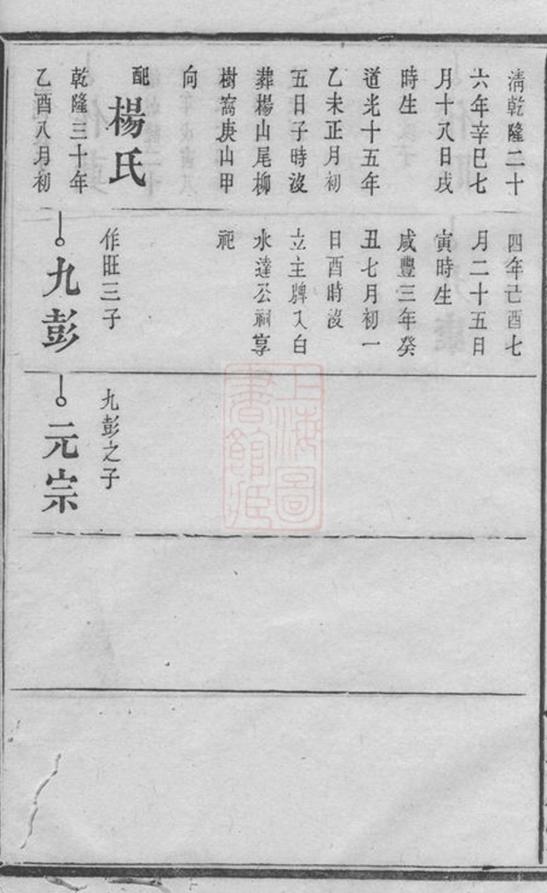 清乾隆二十
六年辛巳七
月十八日戌
時生
道光十五年
乙未正月初
五日子時沒
葬楊山尾柳
樹窩庚山甲
向
配楊氏
乾隆三十年
乙酉八月初
四年己酉七
月二十五日
寅時生
咸豐三年癸
丑七月初一
日酉時沒
立主牌入白
水達公祠享
祀
作旺三子
九彭
九彭之子
元宗
上海圖
書館藏